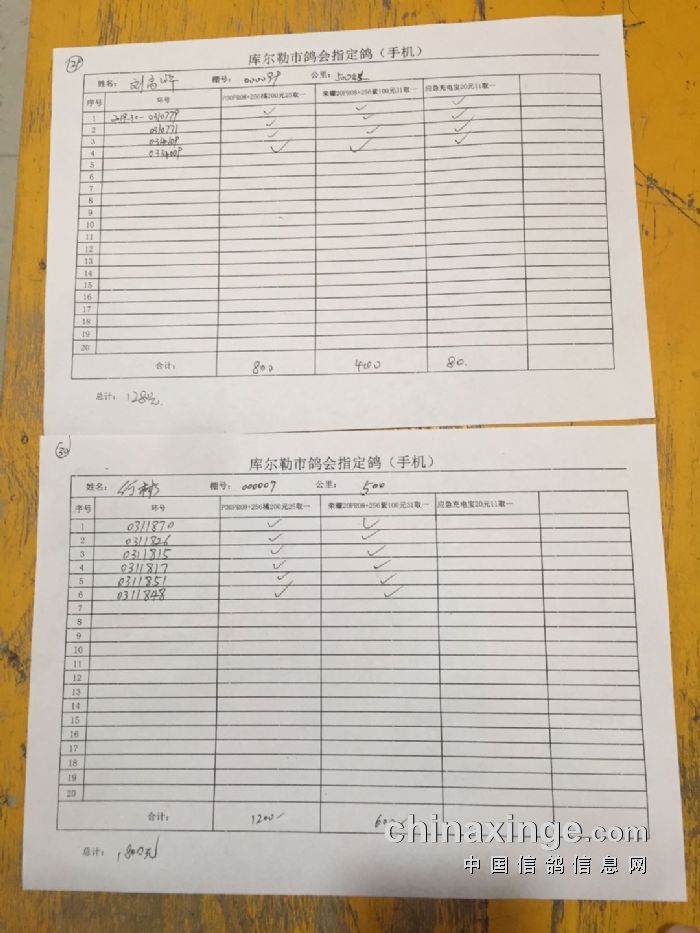 29
库尔勒市鸽会指定鸽（手机）
姓名： 刘 棚号：000089 公里：500
序号 环号 P30PRO8+256橘200元25取一 荣耀20PRO8+256紫100元31取一 应急充电宝20元11取一
1 2019-30-0310779 ✓ ✓ ✓
2 0310771 ✓ ✓ ✓
3 ✓ ✓ ✓
4 ✓ ✓ ✓
5
6
7
8
9
10
11
12
13
14
15
16
17
18
19
20
合计： 800 400 80.
总计： 1280元
30
库尔勒市鸽会指定鸽（手机）
姓名： 棚号：000007 公里：500
序号 环号 P30PRO8+256橘200元25取一 荣耀20PRO8+256紫100元31取一 应急充电宝20元11取一
1 0311870 ✓ ✓
2 0311826 ✓ ✓
3 0311815 ✓ ✓
4 0311817 ✓ ✓
5 0311851 ✓ ✓
6 0311848 ✓ ✓
7
8
9
10
11
12
13
14
15
16
17
18
19
20
合计： 1200
总计： 1800元
chinaxinge.com
中国信鸽信息网